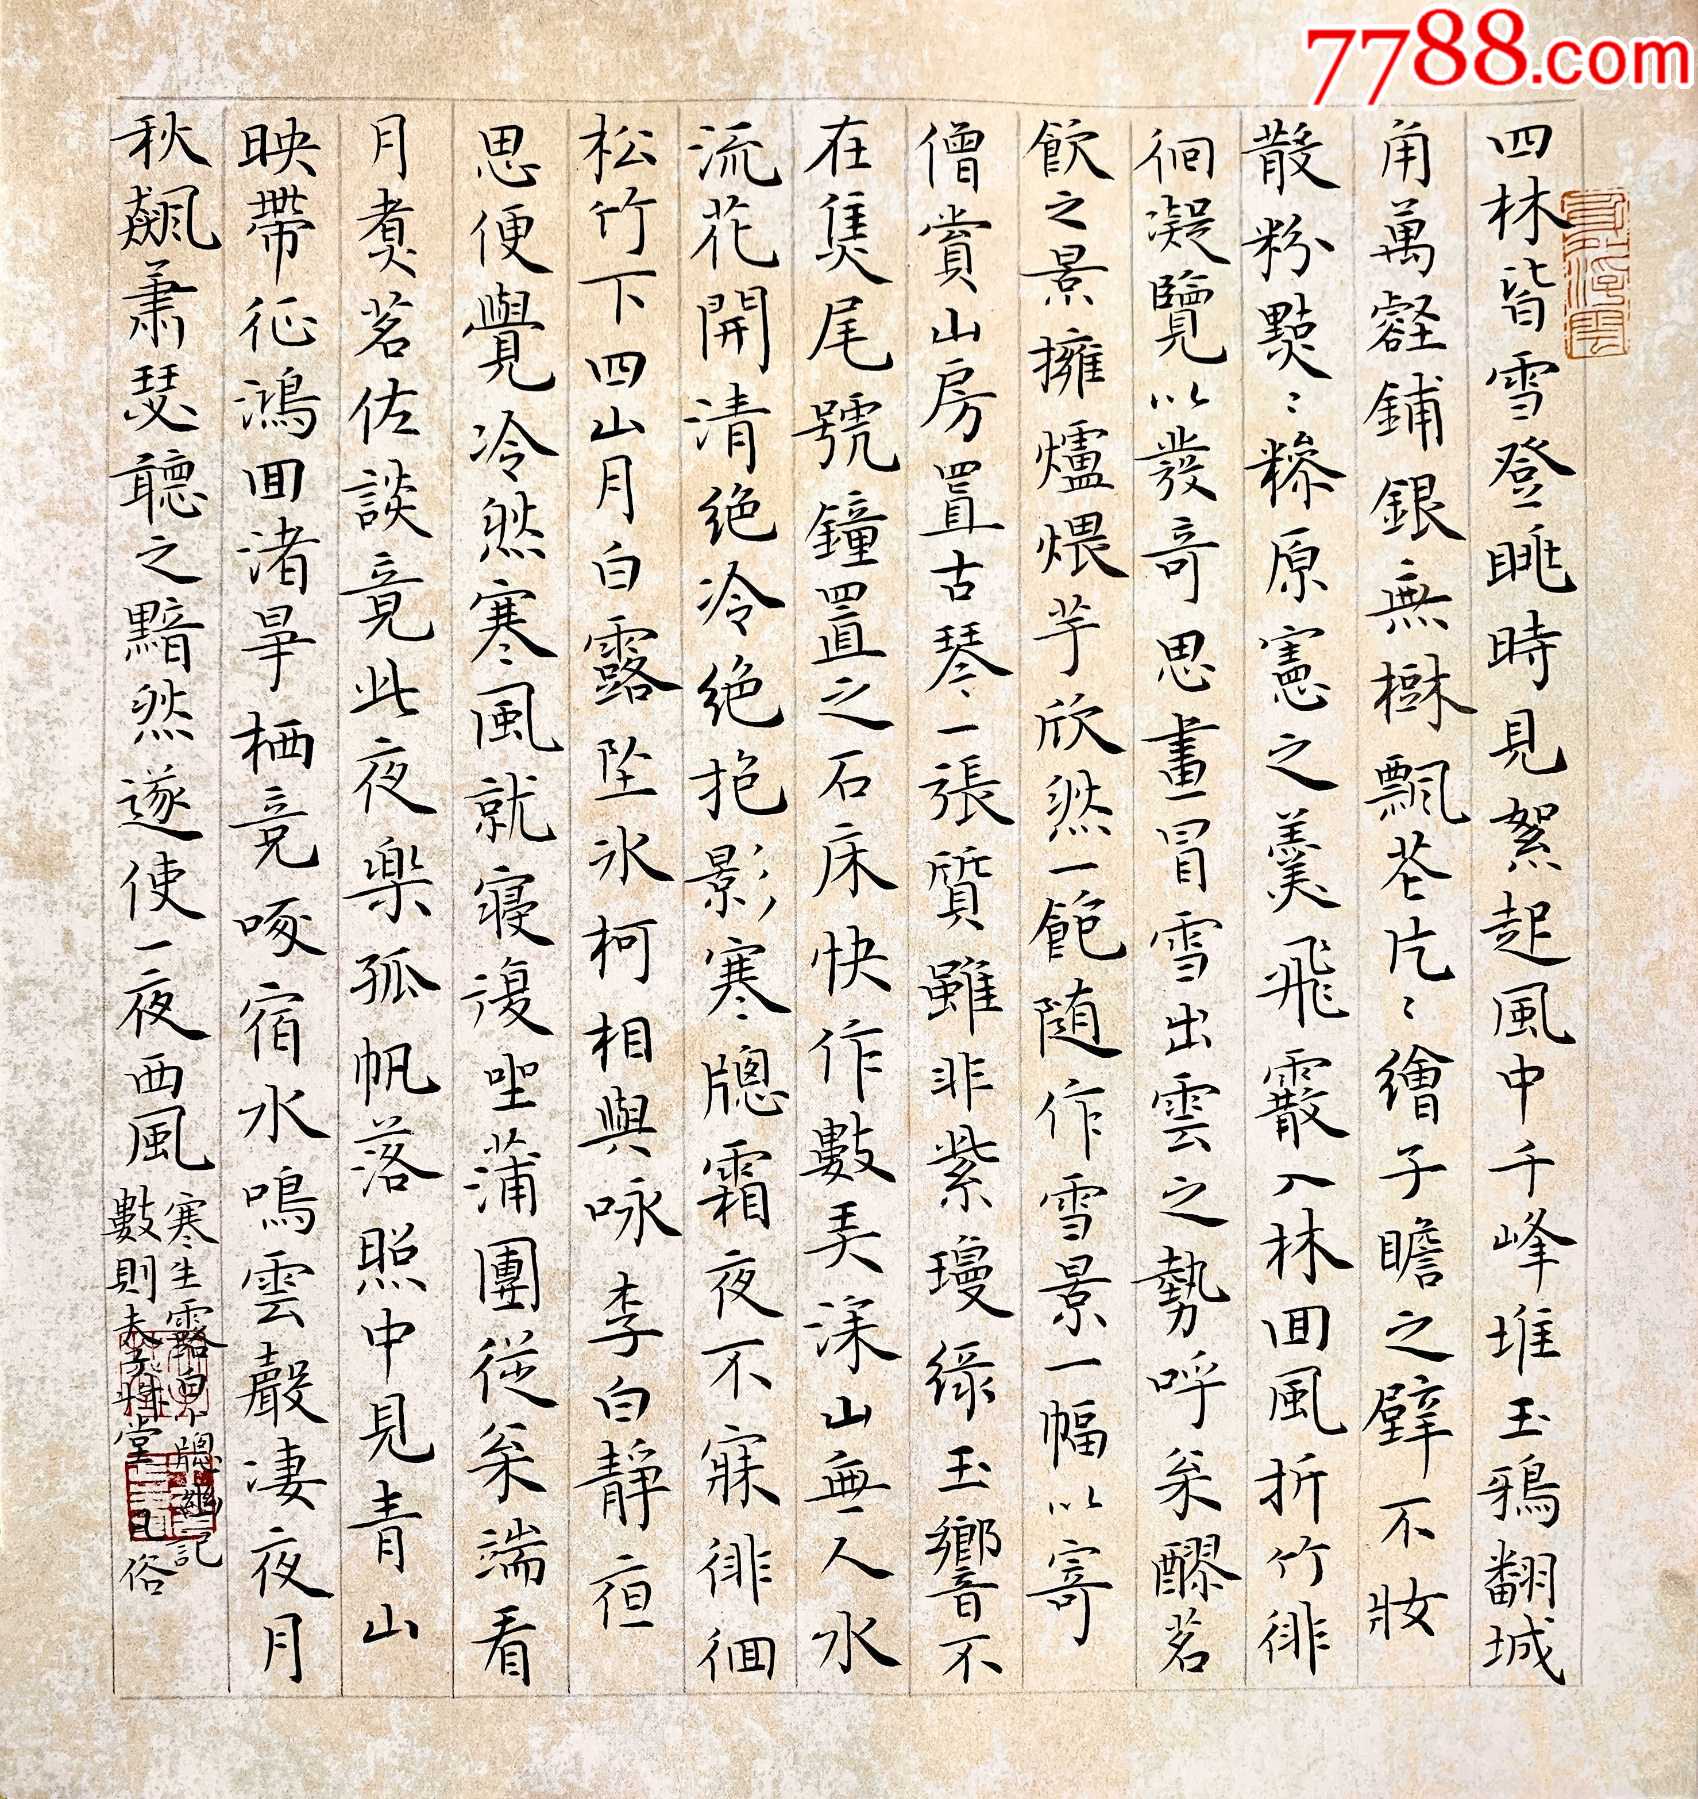 7788.com
四林皆雪登眺時見絮起風中千峰堆玉鴉翻城
角萬壑鋪銀無樹飄花片〻繪子瞻之壁不妝
散粉點〻糝原憲之羹飛霰入林回風折竹徘
徊凝覽以發奇思畫冒雪出雲之勢呼矣醪茗
飲之景擁爐煨芋欣然一飽随作雪景一幅以寄
僧賞山房置古琴一張質雖非紫瓊綠玉響不
在焦尾號鐘置之石床快作數弄深山無人水
流花開清絕冷絕抱影寒牕霜夜不寐徘徊
松竹下四山月白露坠氷柯相與咏李白靜夜
思便覺冷然寒風就寢復坐蒲團從矣端看
月煑茗佐談竟此夜樂孤帆落照中見青山
映帶征鴻回渚爭栖競啄宿水鳴雲聲凄夜月
秋飆蕭瑟聽之黯然遂使一夜西風
寒生露白小牕幽記
數則
俗